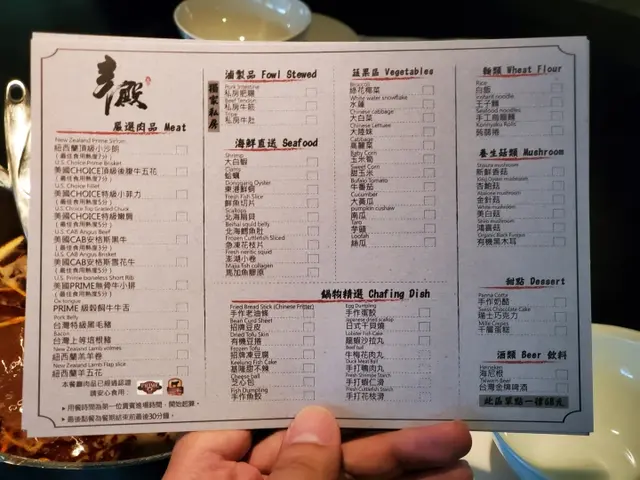 嚴選肉品 Meat
New Zealand Prime Sirloin
紐西蘭頂級小沙朗
(最佳食用熟度7分)
U.S. Choice Prime Brisket
美國CHOICE頂級後腹牛五花
(最佳食用熟度7分)
U.S. Choice Fillet
美國CHOICE特級小菲力
(最佳食用熟度5分)
美國CHOICE特級嫩肩
(最佳食用熟度5分)
U.S. CAB Angus Beef
美國CAB安格斯黑牛
(最佳食用熟度5分)
U.S. CAB Angus Brisket
美國CAB安格斯雪花牛
(最佳食用熟度7分)
U.S. Prime boneless Short Rib
美國PRIME無骨牛小排
(最佳食用熟度5分)
Ox tongue
PRIME 級穀飼牛牛舌
Pork Belly
台灣特級黑毛豬
Bacon
台灣上等培根豬
New Zealand Lamb volmes
紐西蘭羔羊卷
New Zealand Lamb Flap slice
紐西蘭羊五花
本餐廳肉品已經過認證
請安心食用：
▸用餐時間為第一位賓客進場時間，開始起算。
▸最後點餐為餐期結束前最後30分鐘。
滷製品 Fowl Stewed
獨家私房
Pork Intestine
私房肥腸
Beef Tendon
私房牛筋
Tripe
私房牛肚
海鮮直送 Seafood
Shrimp
大白蝦
Clams
蛤蠣
Donggang Oyster
東港鮮蚵
Fresh Fish Slice
鮮魚切片
Scallops
北海扇貝
Beihai squid belly
北海鱈魚肚
Frozen Cuttlefish Sliced
急凍花枝片
Fresh neritic squid
澎湖小卷
Majia fish collagen
馬加魚膠原
蔬果區 Vegetables
Broccoli
綠花椰菜
White water snowflake
水蓮
Chinese cabbage
大白菜
Chinese Lettuce
大陸妹
Cabbage
高麗菜
Baby Corn
玉米筍
Sweet Corn
甜玉米
Bufalo Tomato
牛番茄
Cucumber
大黃瓜
pumpkin cushaw
南瓜
Taro
芋頭
Loofah
絲瓜
鍋物精選 Chafing Dish
Fried Bread Stick (Chinese Fritter)
手作老油條
Bean Curd Sheet
招牌豆皮
Dried Tofu Skin
有機豆捲
Frozen Tofu
招牌凍豆腐
Keelung Fish Cake
基隆甜不辣
Cheese ball
芝心包
Fish Dumpling
手作魚餃
Egg Dumpling
手作蛋餃
Japanese dried scallop
日式干貝燒
Lobster Fish Cake
龍蝦沙拉丸
Beef Ball
牛梅花肉丸
Duck Meat Ball
手打鴨肉丸
Fresh Shrimp Starch
手打蝦仁滑
Fresh Cuttlefish Starch
手打花枝滑
麵類 Wheat Flour
Rice
白飯
Instant noodle
王子麵
Seafood noodles
手工烏龍麵
Konnyaku Rolls
蒟蒻捲
養生菇類 Mushroom
Shiitake mushroom
新鮮香菇
King Oyster mushroom
杏鮑菇
金針菇
White mushroom
美白菇
鴻禧菇
Organic Black Fungus
有機黑木耳
甜點 Dessert
Panna Cotta
手作奶酪
Swiss Chocolate Cake
瑞士巧克力
Mille Crepes
千層蛋糕
酒類 Beer 飲料
Heineken
海尼根
Taiwan Beer
台灣金牌啤酒
此區單點一律額外